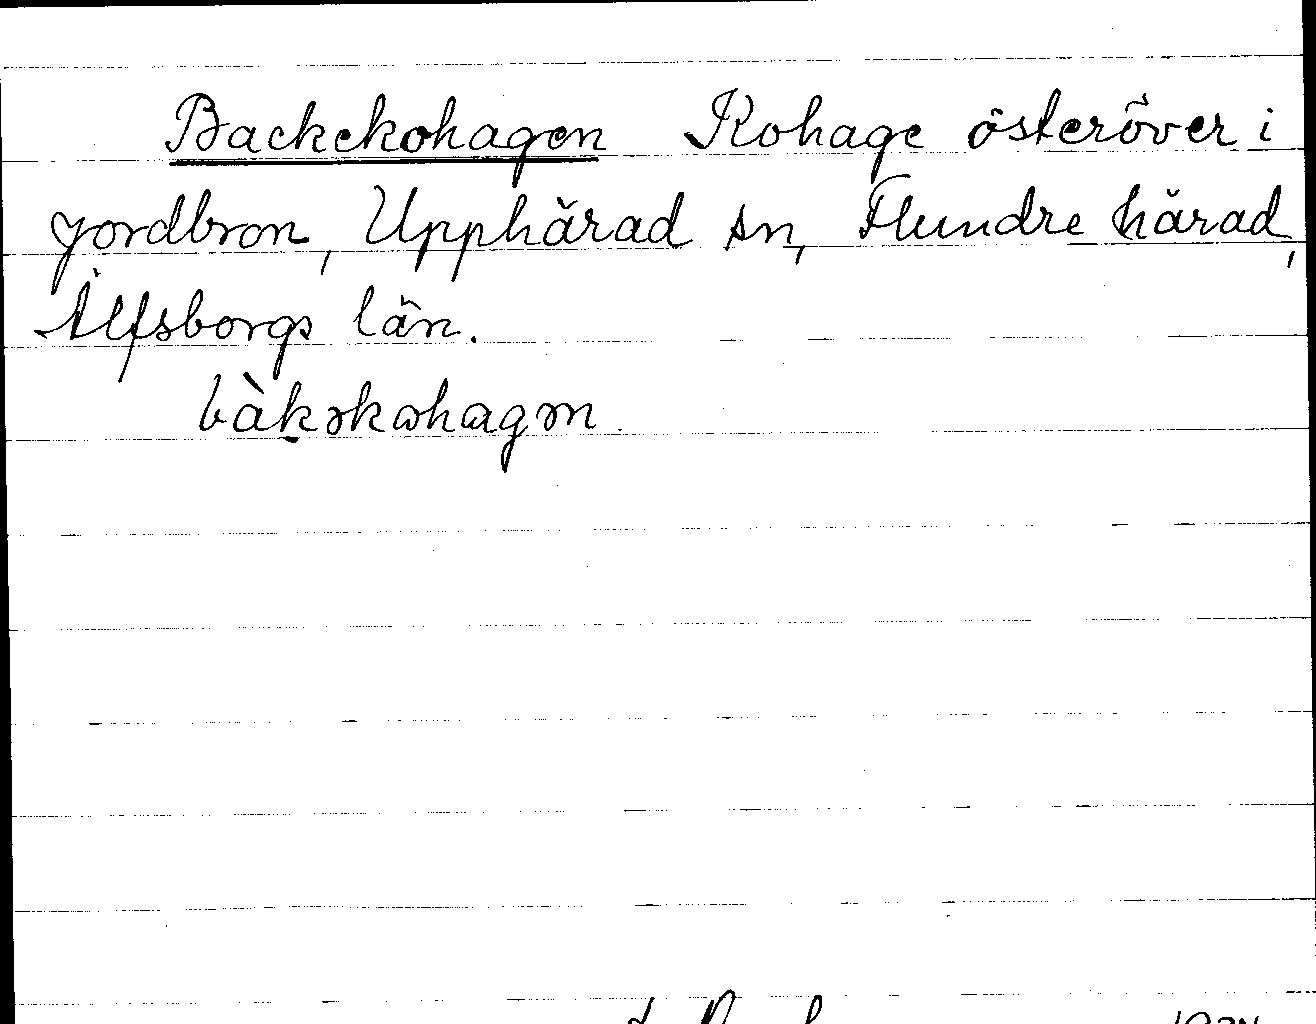 Backekohagen Kohage österöver i
Jordbron, Upphärad sn, Flundre härad,
Älfsborgs län.
bàkəkωhagən.